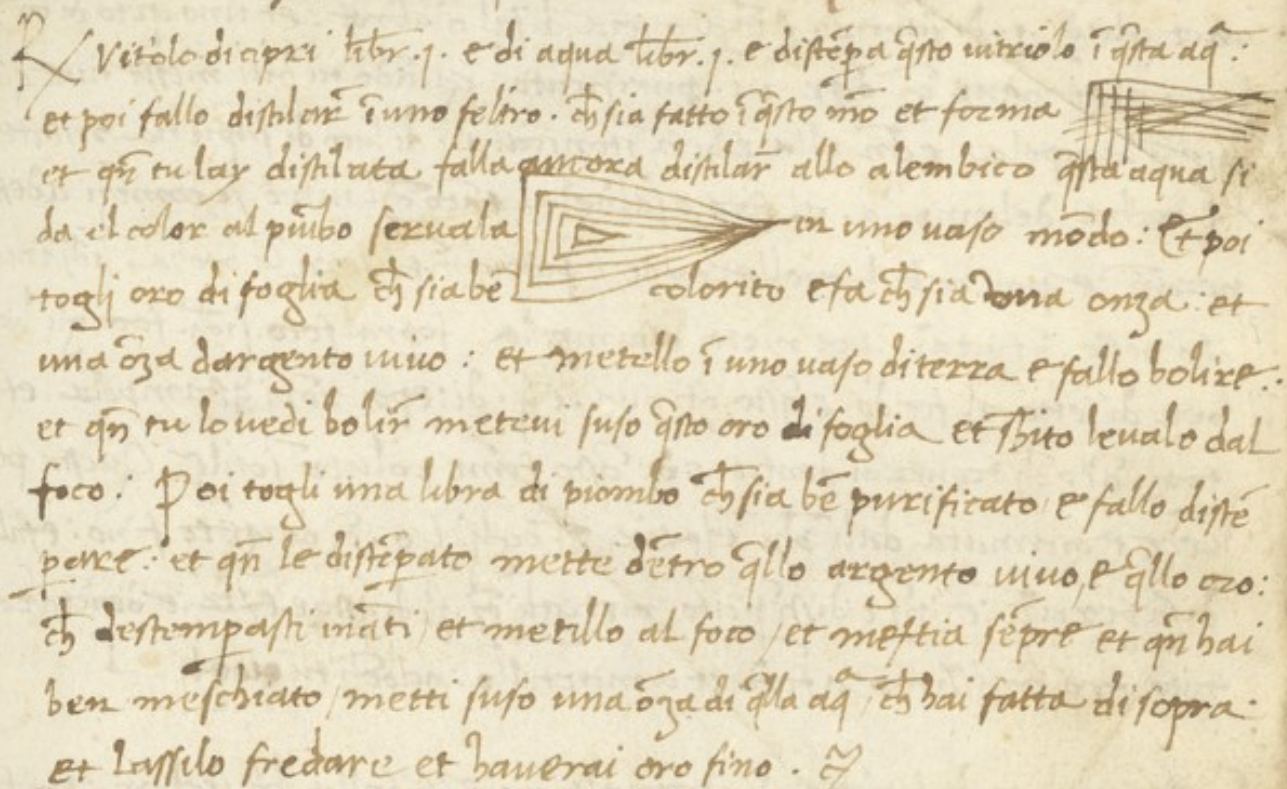 ℞ Vitolo di cipri libr̄. j. e di aqua libr̄. j. e distēpa q̄sto uitriolo ī q̄sta aq̄ :
et poi fallo distilar̄ ī uno feltro. ch̄ sia fatto ī q̄sto mō et forma
et qn̄ tu lay distilata falla ancora distilar̄ allo alembico q̄sta aqua si
da el color al piūbo seruala in uno uaso mōdo : Et poi
togli oro di foglia ch̄ sia bē colorito e fa ch̄ sia una onza : et
una ōza dargento uiuo : et metello ī uno uaso di terra e fallo bolire .
et qn̄ tu lo uedi bolir̄ meteui suso q̄sto oro di foglia et sbito leualo dal
foco : Poi togli una libra di piombo ch̄ sia bē purificato e fallo distē
pare : et qn̄ le distēpato mette dētro q̄llo argento uiuo, e q̄llo oro :
ch̄ destemp̄asti ināti / et metillo al foco / et mestia sēpre et qn̄ hai
ben meschiato / metti suso una ōza di q̄lla aq̄ ch̄ hai fatta di sopra .
et lassilo fredare et hauerai oro fino .